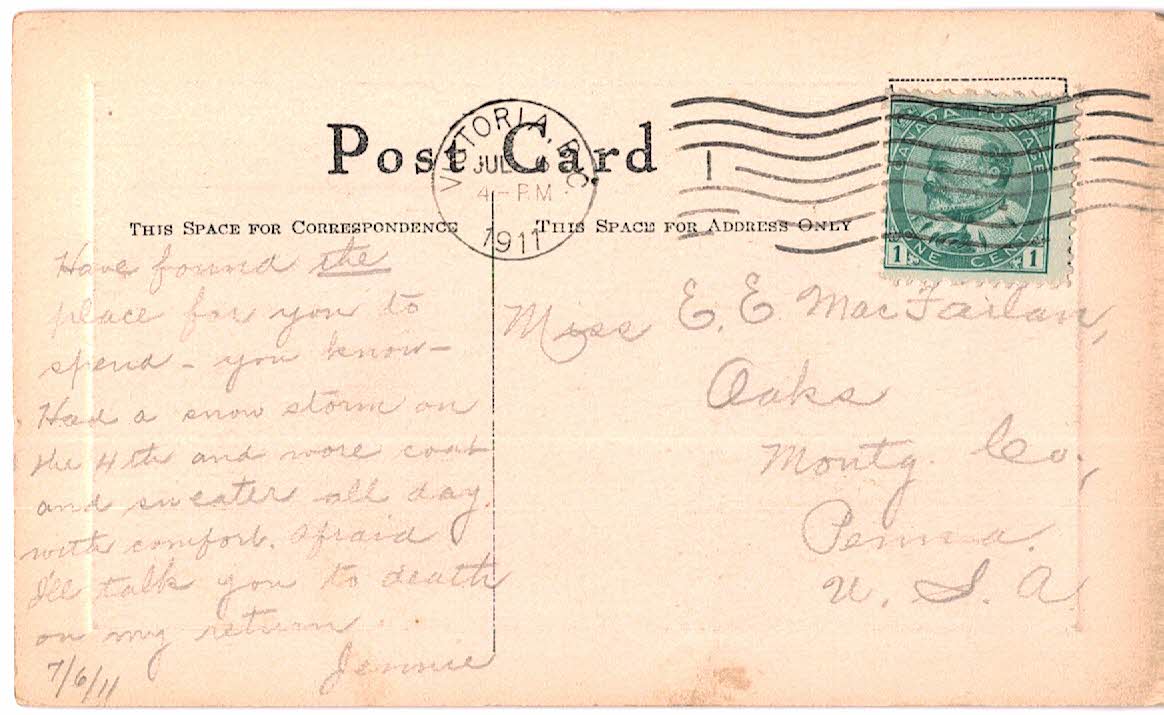 Post Card
VICTORIA, B.C.
JUL
4 - PM
1911
CANADA POSTAGE
1 ONE CENT 1
THIS SPACE FOR CORRESPONDENCE
THIS SPACE FOR ADDRESS ONLY
Have found the
place for you to
spend - you know -
Had a snow storm on
the 4th and wore coat
and sweater all day,
with comfort. Afraid
I'll talk you to death
on my return.
Jennie
7/6/11
Miss E. E. MacFarlan,
Oaks
Montg. Co.,
Penna.
U. S. A.